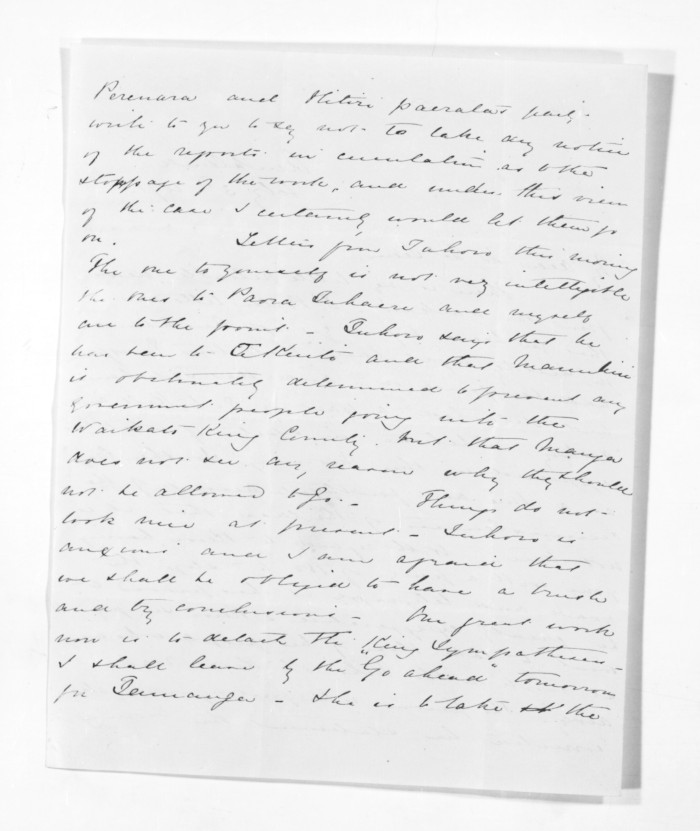 Perenara and Hitiri Paerata's party
write to you to say not to take any notice
of the reports in circulation as to the
stoppage of the work, and under this view
of the case I certainly would let them go
on. Letters from Tuhoro this morning
The one to yourself is not very intelligible
the ones to Paora Tuhaere and myself
are to the point - Tuhoro says that he
has been to Te Kuiti and that Manuhiri
is obstinately determined to prevent any
government people going into the
Waikato King Country but that Manga
does not see any reason why they should
not be allowed to go. - Things do not
look nice at present - Tuhoro is
anxious and I am afraid that
we shall be obliged to have a brush
and try conclusions - Our great work
now is to detach the "King Sympathisers -
I shall leave by the "Go ahead" tomorrow
for Tauranga - she is to take the